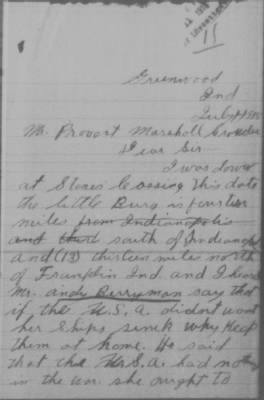 15
Greenwood
Ind
July
Mr. Provost Marshall Crowder
Dear Sir
I was down
at Stones Crossing this date
the little Burg is four
miles from Indianapolis
and south of Indianap
and (13) thirteen miles north
of Franklin Ind. and I heard
Mr. Andy Berryman say that
if the U.S.A. didn't want
her ships sunk why keep
them at home. He said
that the U.S.A. had no
in the war. she ought to